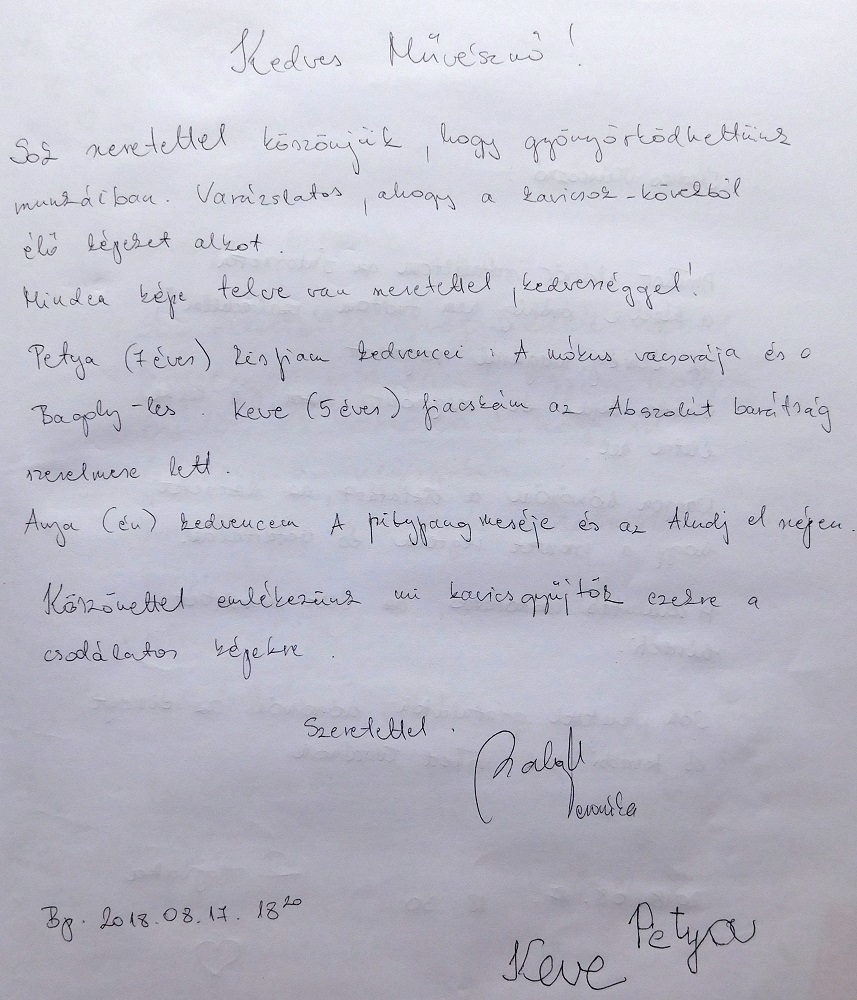 Kedves Művésznő!
Sok szeretettel köszönjük, hogy gyönyörködhettünk
munkáiban. Varázslatos, ahogy a kavicsok-kövekből
élő képeket alkot.
Minden képe telve van szeretettel, kedvességgel!
Petya (7 éves) kisfiam kedvencei: A mókus vacsorája és a
Bagoly-les. Keve (5 éves) fiacskám az Abszolút barátság
szerelmese lett.
Anya (én) kedvencem A pitypang meséje és az Aludj el szépen.
Köszönettel emlékezünk mi kavicsgyűjtők ezekre a
csodálatos képekre.
Szeretettel.
Veronika
Bp. 2018.08.17. 18 20
Petya
Keve